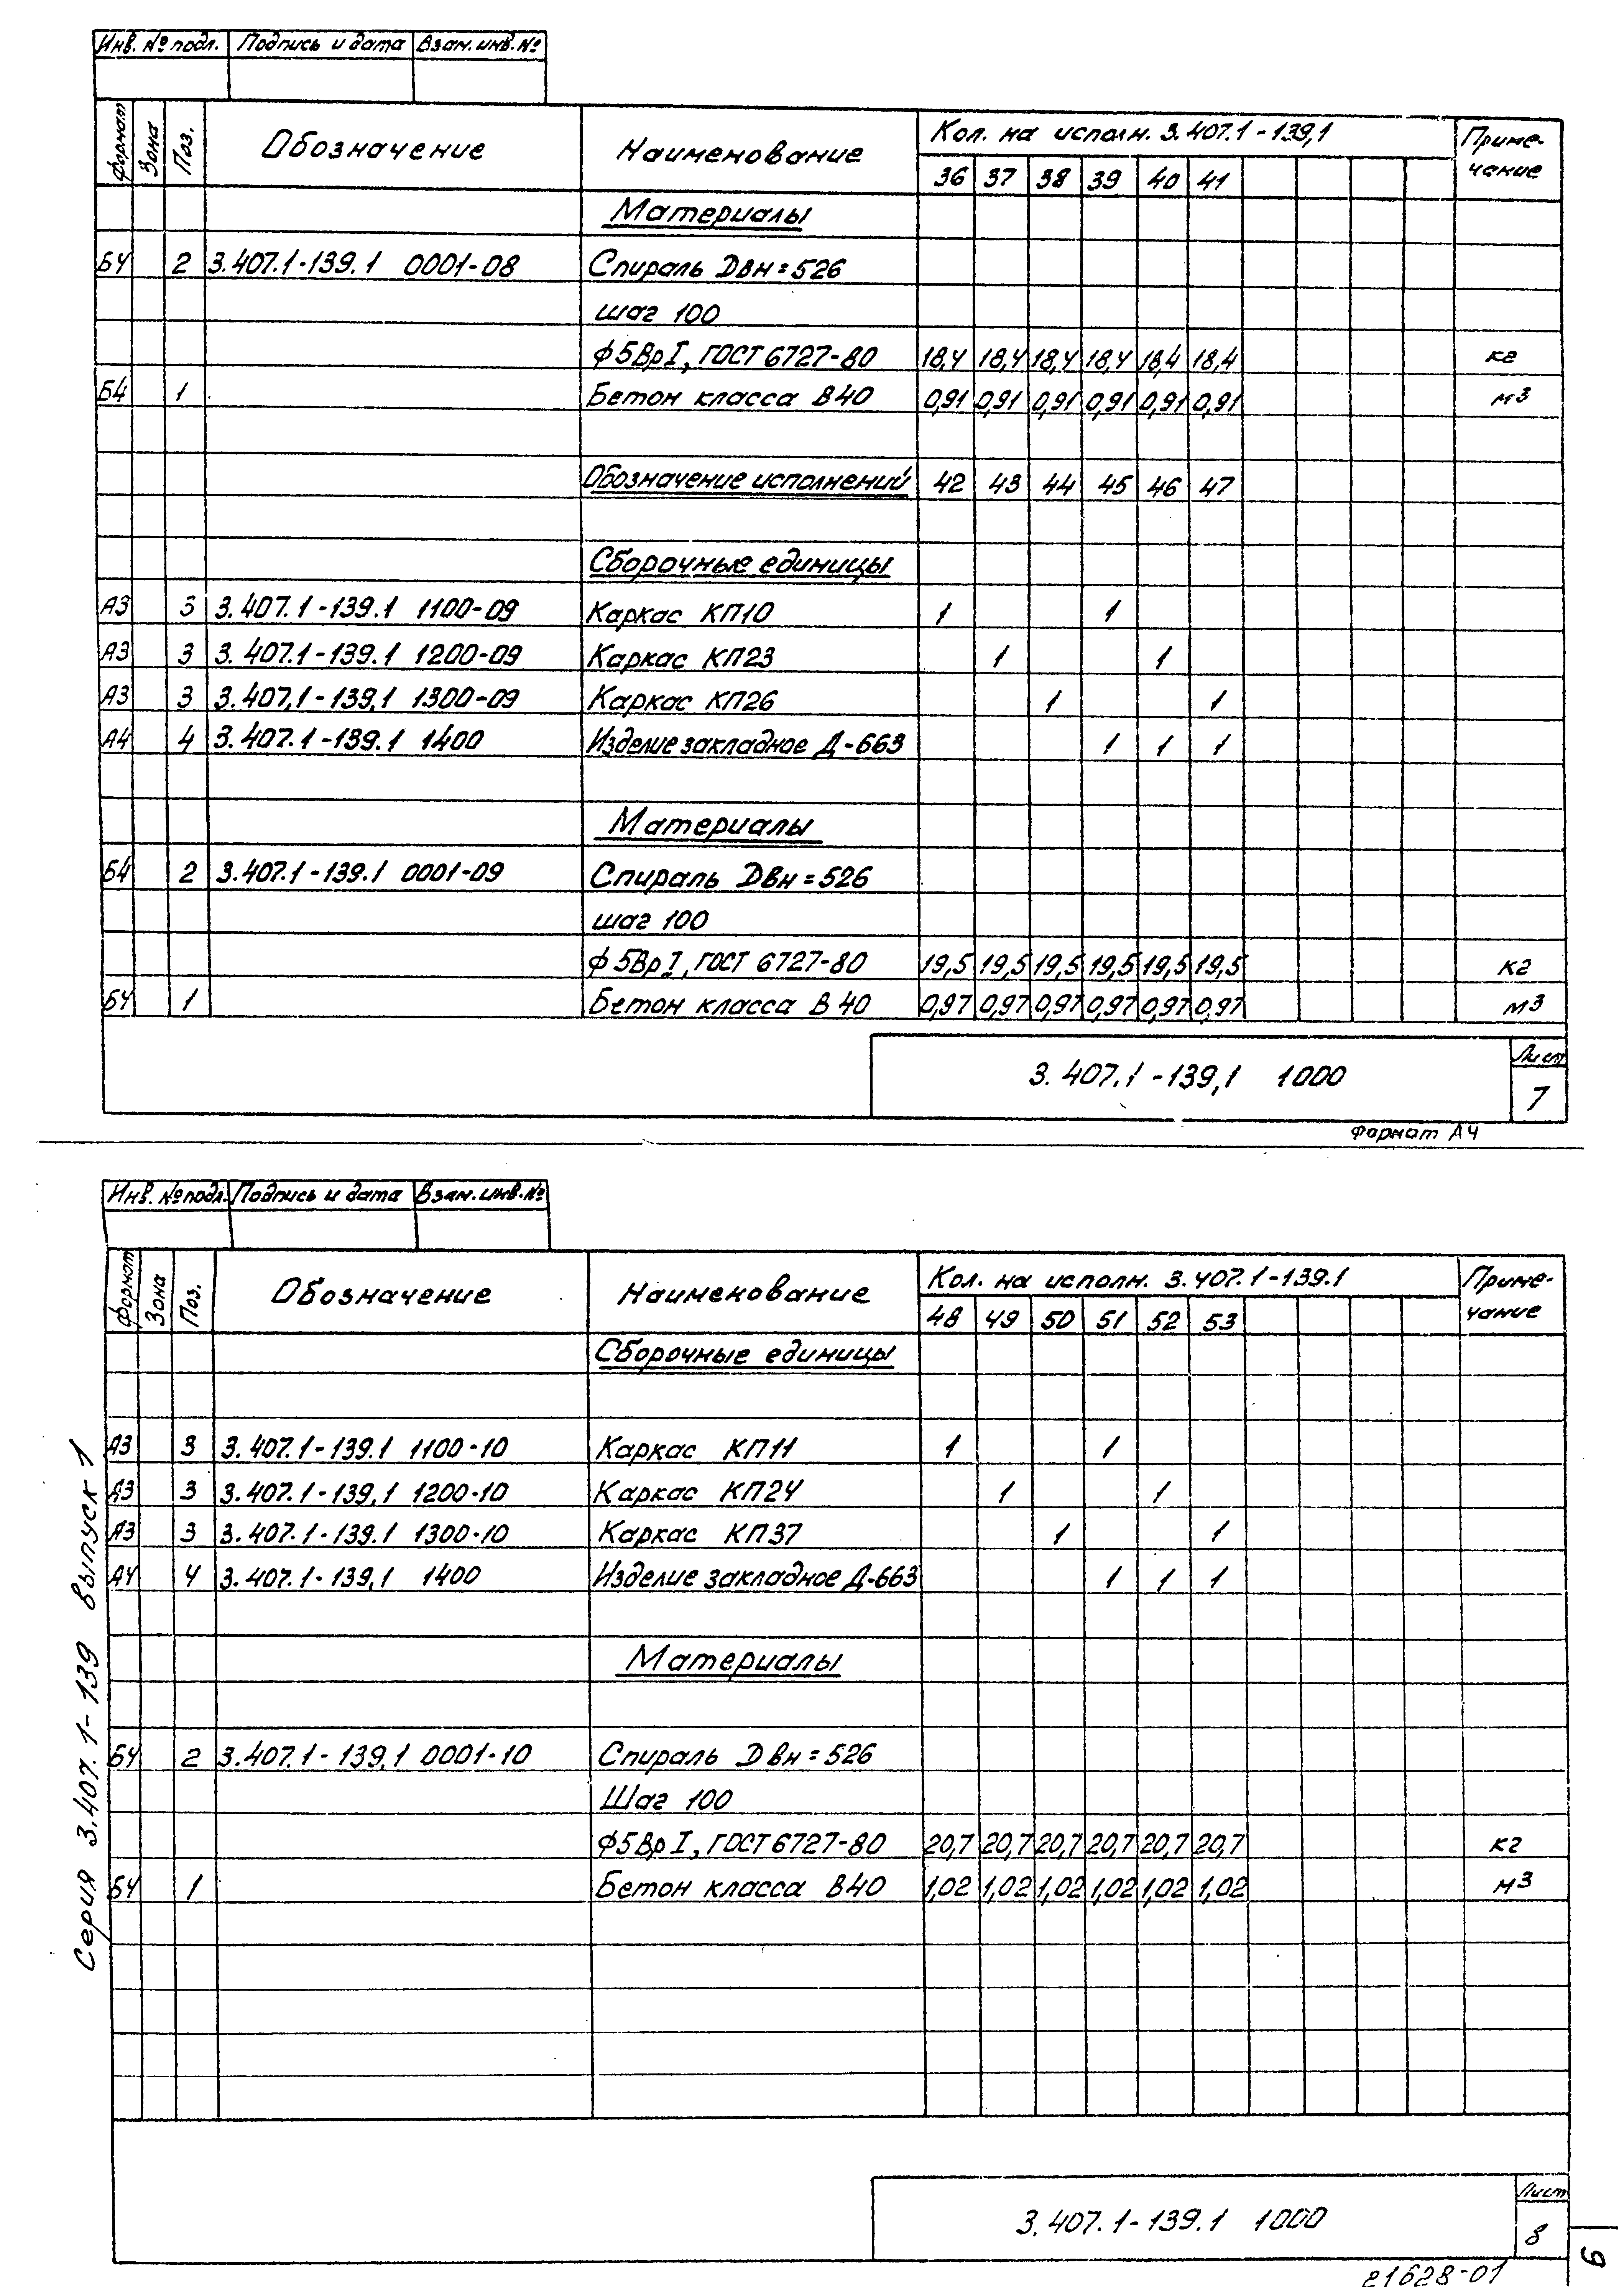 Инв. № подл. Подпись и дата Взам. инв. №
Формат Зона Поз. Обозначение Наименование Кол. на исполн. 3.407.1-139,1 Приме-
36 37 38 39 40 41 чание
Материалы
Б4 2 3.407.1-139.1 0001-08 Спираль Dвн=526
шаг 100
ф5ВрI, ГОСТ 6727-80 18,4 18,4 18,4 18,4 18,4 18,4 кг
Б4 1 Бетон класса В40 0,91 0,91 0,91 0,91 0,91 0,91 м3
Обозначение исполнений 42 43 44 45 46 47
Сборочные единицы
А3 3 3.407.1-139.1 1100-09 Каркас КП10 1 1
А3 3 3.407.1-139.1 1200-09 Каркас КП23 1 1
А3 3 3.407,1-139,1 1300-09 Каркас КП26 1 1
А4 4 3.407.1-139.1 1400 Изделие закладное Д-663 1 1 1
Материалы
Б4 2 3.407.1-139.1 0001-09 Спираль Dвн=526
шаг 100
ф5ВрI, ГОСТ 6727-80 19,5 19,5 19,5 19,5 19,5 19,5 кг
Б4 1 Бетон класса В 40 0,97 0,97 0,97 0,97 0,97 0,97 м3
3.407.1-139,1 1000 Лист
7
Формат А4
Инв. № подл. Подпись и дата Взам. инв. №
Формат Зона Поз. Обозначение Наименование Кол. на исполн. 3.407.1-139.1 Приме-
48 49 50 51 52 53 чание
Сборочные единицы
А3 3 3.407.1-139.1 1100-10 Каркас КП11 1 1
А3 3 3.407.1-139,1 1200-10 Каркас КП24 1 1
А3 3 3.407.1-139.1 1300-10 Каркас КП37 1 1
А4 4 3.407.1-139,1 1400 Изделие закладное Д-663 1 1 1
Материалы
Б4 2 3.407.1-139,1 0001-10 Спираль Dвн=526
Шаг 100
ф5ВрI, ГОСТ 6727-80 20,7 20,7 20,7 20,7 20,7 20,7 кг
Б4 1 Бетон класса В40 1,02 1,02 1,02 1,02 1,02 1,02 м3
Серия 3.407.1-139 выпуск 1
3.407.1-139.1 1000 Лист
8
21628-01
9